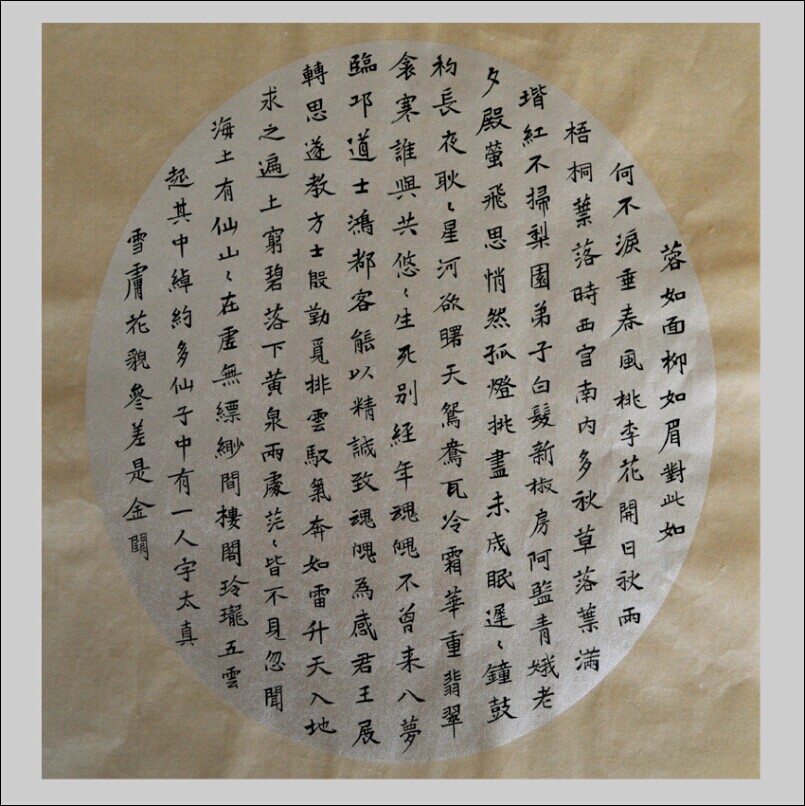 蓉如面柳如眉對此如
何不淚垂春風桃李花開日秋雨
梧桐葉落時西宫南内多秋草落葉滿
堦紅不掃梨園弟子白髮新椒房阿監青娥老
夕殿螢飛思悄然孤燈挑盡未成眠遲〻鐘鼓
初長夜耿〻星河欲曙天鴛鴦瓦冷霜華重翡翠
衾寒誰與共悠〻生死别經年魂魄不曾来入夢
臨邛道士鴻都客能以精誠致魂魄為感君王展
轉思遂教方士殷勤覓排雲馭氣奔如雷升天入地
求之遍上窮碧落下黄泉兩處茫〻皆不見忽聞
海上有仙山〻在虚無縹緲間樓閣玲瓏五雲
起其中綽約多仙子中有一人字太真
雪膚花貌參差是金闕